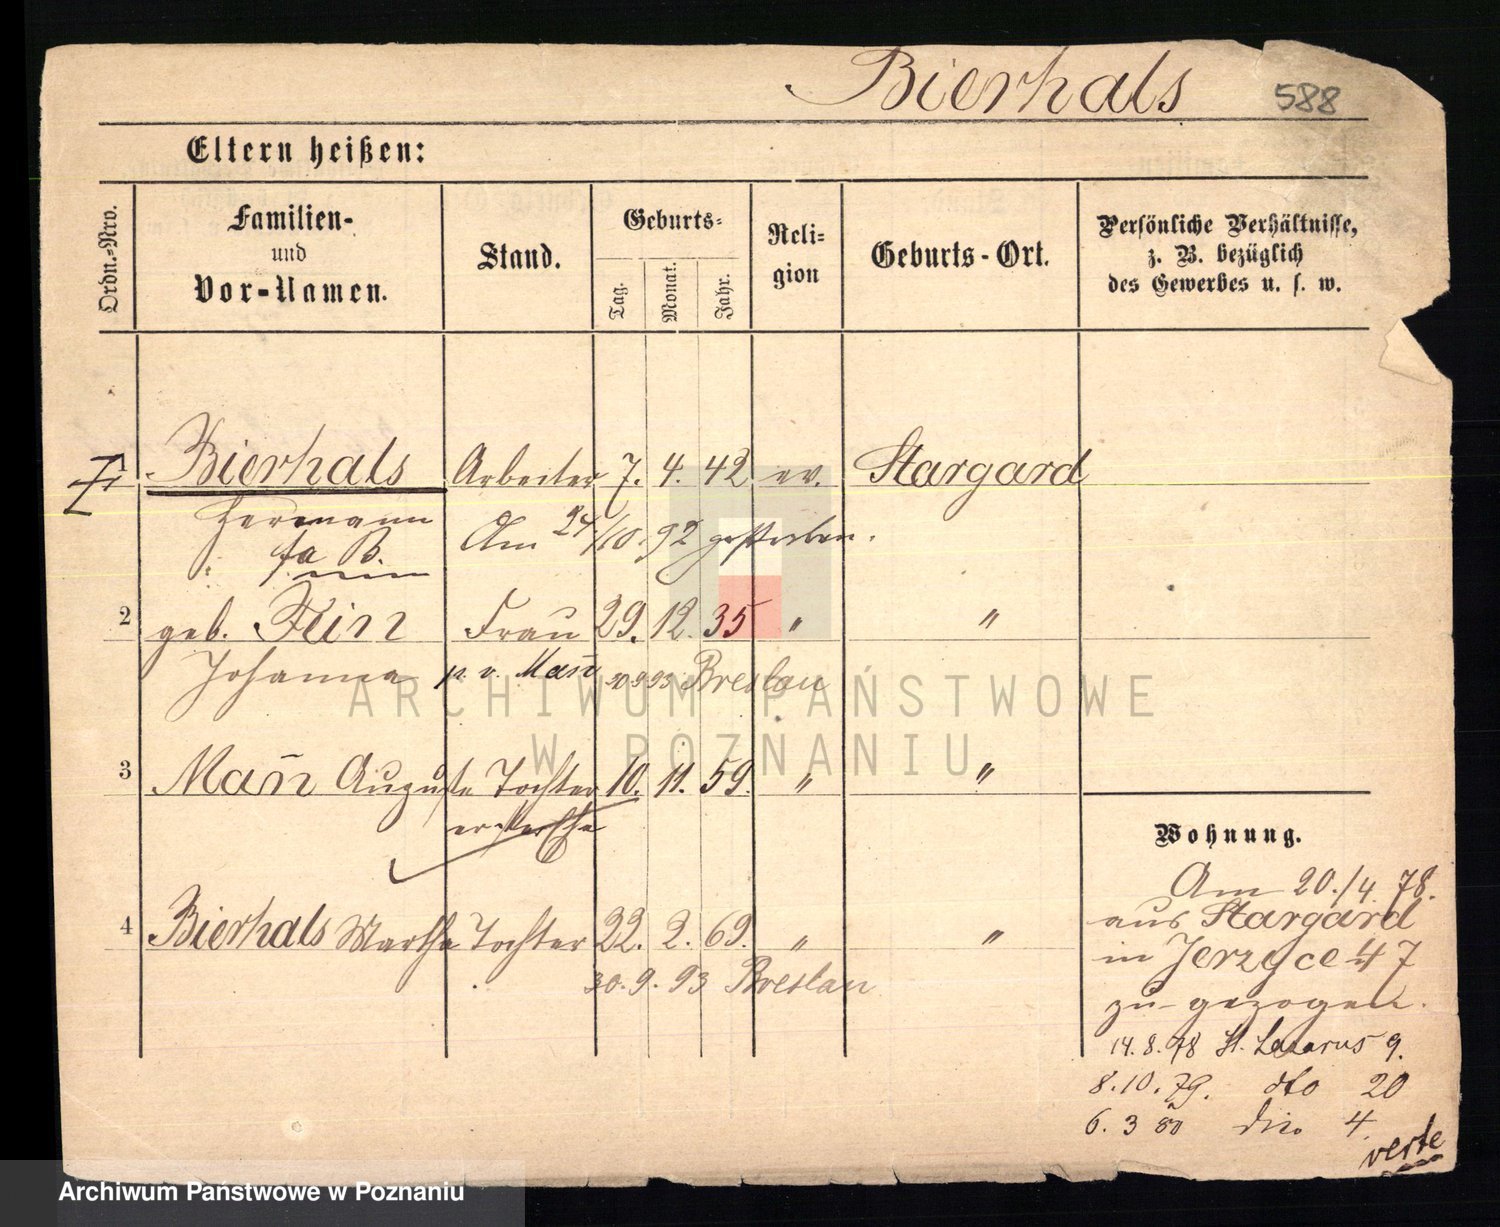 Bierhals 588
Eltern heißen:
Ordn.-Nro.
Familien-
und
Vor-Namen.
Stand.
Geburts-
Tag.
Monat.
Jahr.
Reli-
gion
Geburts-Ort.
Persönliche Verhältnisse,
z. B. bezüglich
des Gewerbes u. s. w.
1 Bierhals Arbeiter 7. 4. 42 ev. Stargard
Hermann Am 24/10. 92 gestorben.
fa B.
2 geb. Frau 29. 12. 35 " "
Johanna v. Man̄ 30 9 93 Breslau
ARCHIWUM PAŃSTWOWE
W POZNANIU
3 Man̄ Auguste Tochter 10. 11. 59. " "
4 Bierhals Martha Tochter 22. 2. 69. " "
30. 9. 93 Breslau
Wohnung.
Am 20./4. 78.
aus Stargard
in Jerzyce 47
zu-gezogen.
14. 8. 78 St. Lazarus 9.
8. 10. 79. dto 20
6. 3 80 dto 4.
verte
Archiwum Państwowe w Poznaniu